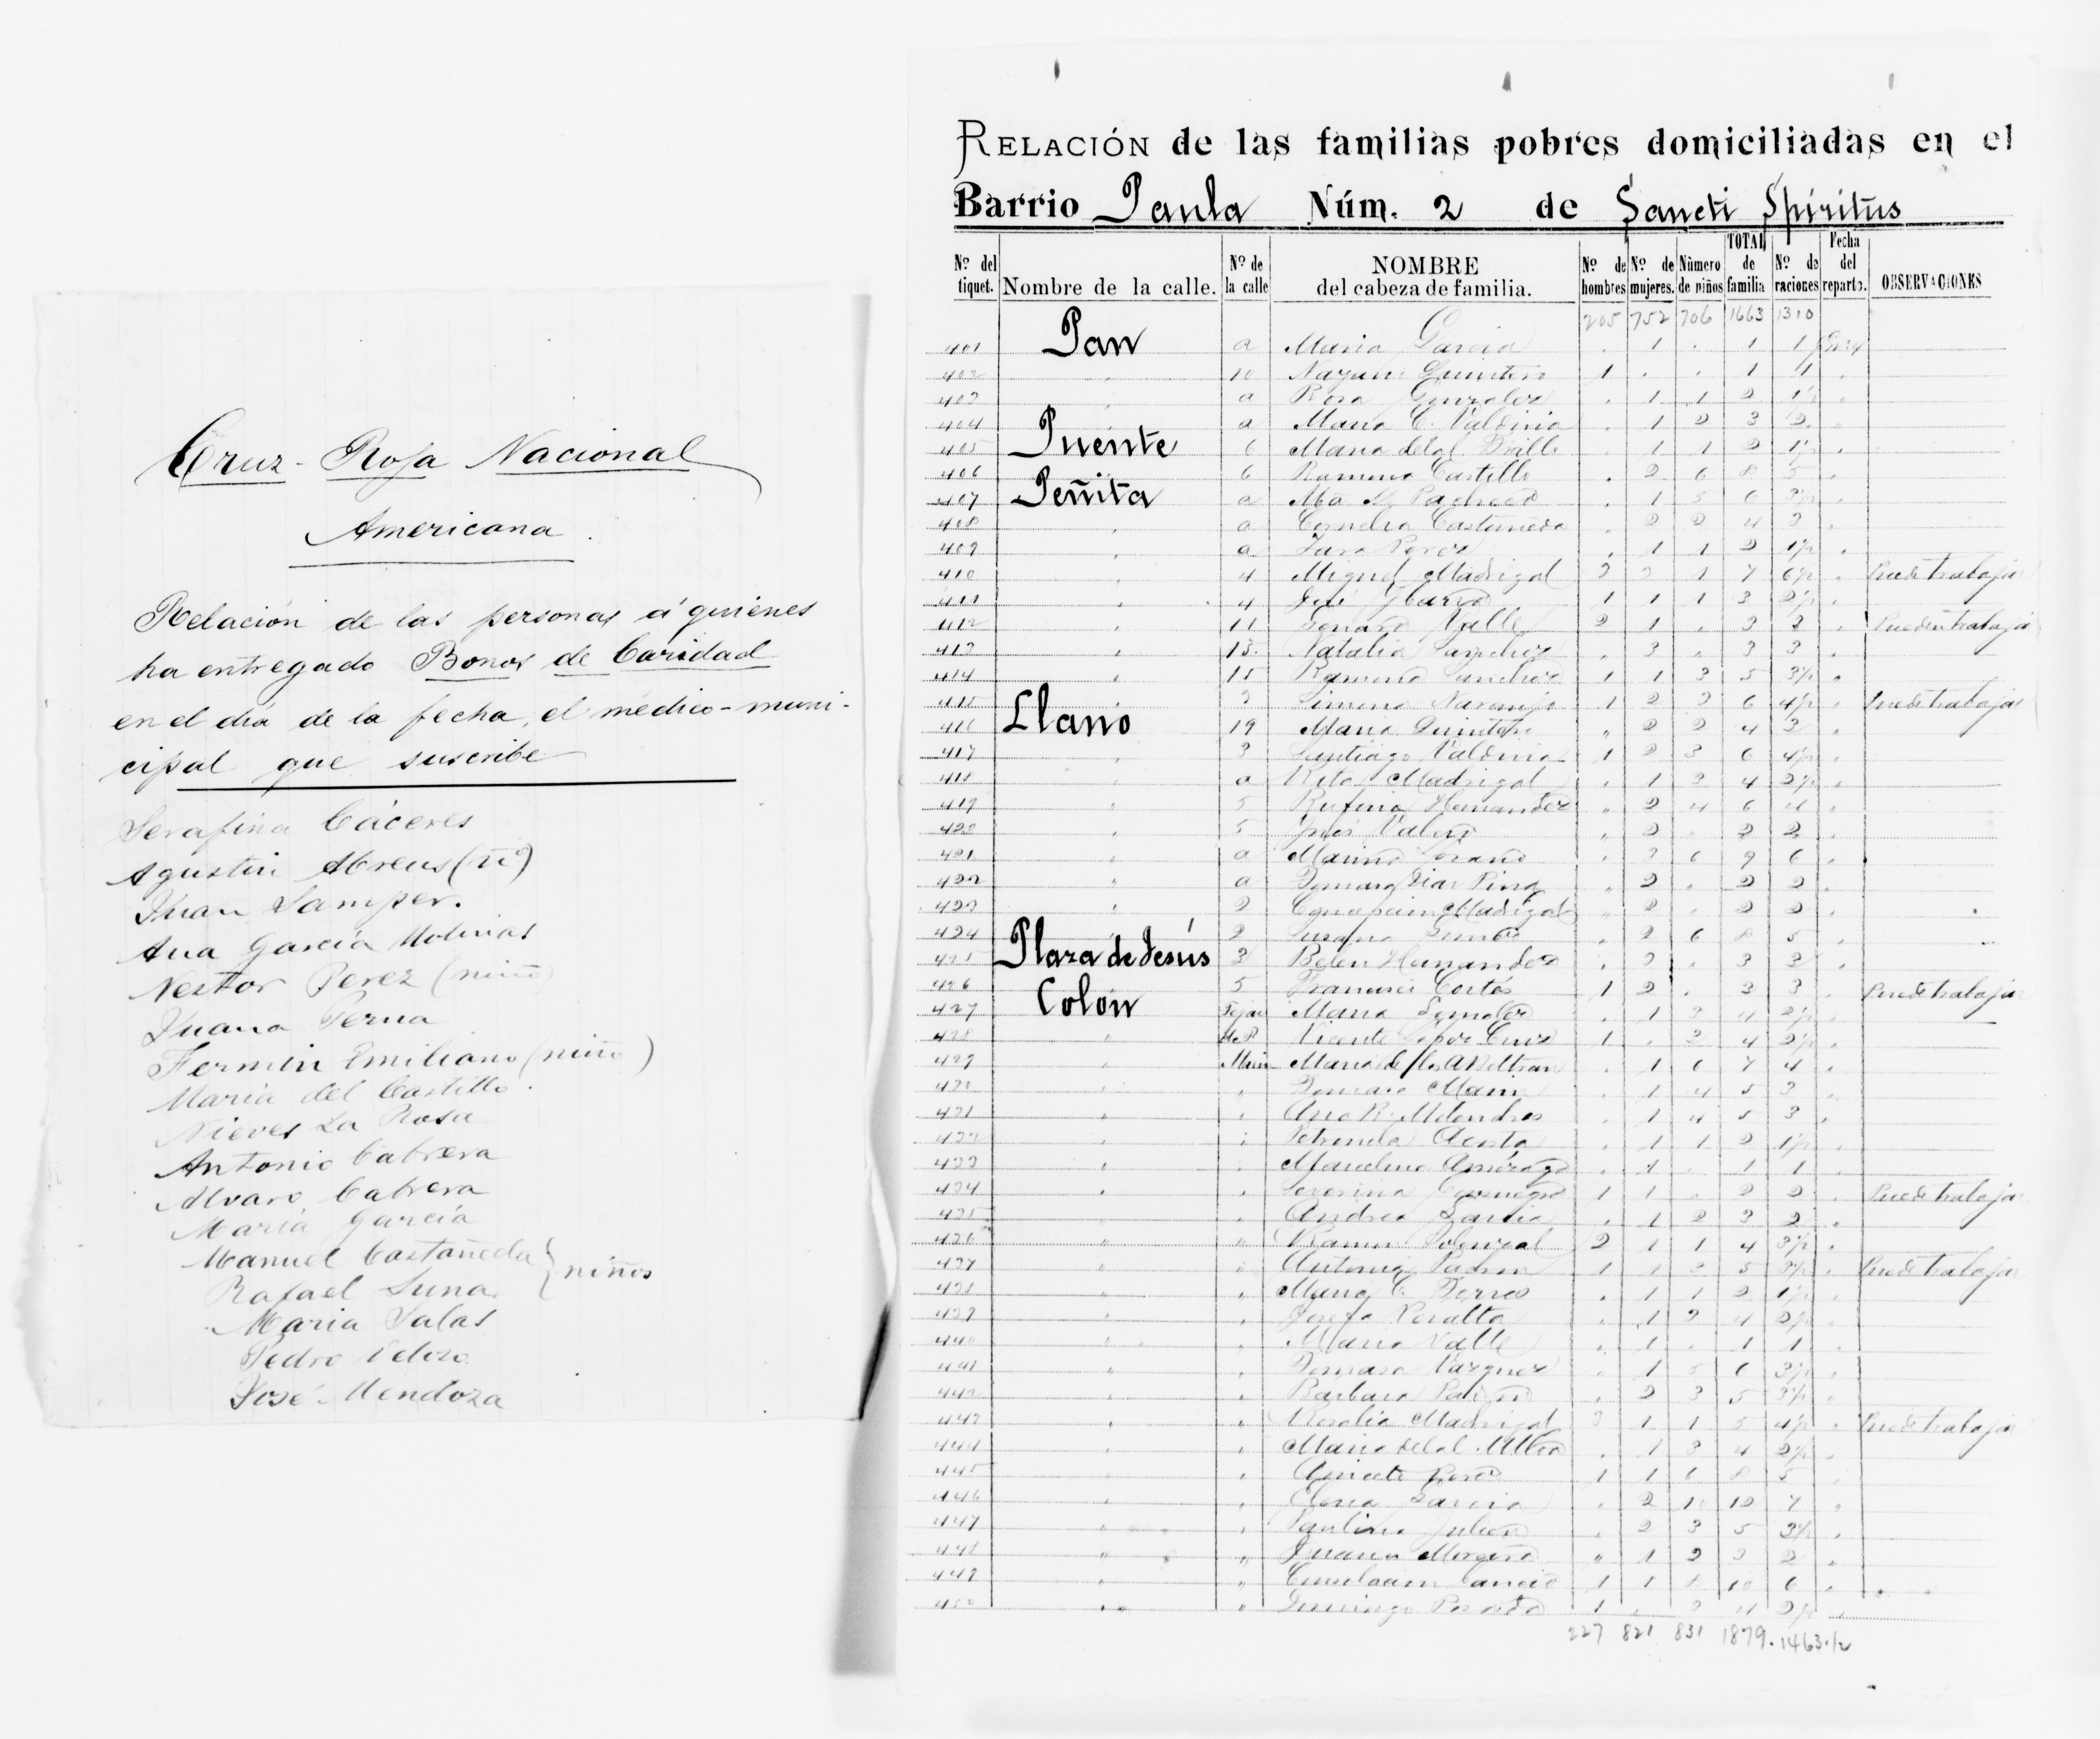 Cruz - Roja Nacional
Americana.
Relación de las personas á quienes
ha entregado Bonos de Caridad
en el dia de la fecha, el médico-muni-
cipal que suscribe
Serafina Cáceres
Agustin Abreus
Juan Samper.
Ana Garcia Molinas
Nestor Perez (niño)
Juana Perna
Fermin Emiliano (niño)
Maria del Castillo.
Nieves La Rosa
Antonio Cabrera
Alvaro Cabrera
Maria Garcia
Manuel Castañeda } niños
Rafael Luna.
Maria Salas
Pedro Veloso
José Mendoza
RELACIÓN de las familias pobres domiciliadas en el
Barrio Paula Núm. 2 de Sancti Spiritus
Nº del tiquet. Nombre de la calle. Nº de la calle NOMBRE del cabeza de familia. Nº de hombres Nº de mujeres. Número de niños TOTAL de familia Nº de raciones Fecha del reparto. OBSERVACIONES
205 752 706 1663 1310
401 Pan a Maria Garcia . 1 . 1 1
402 " 10 Quintero 1 . . 1 1
403 " a Rosa Gonzalez . 1 1 2 1½
404 " a Maria C. Valdivia . 1 2 3 2
405 Puente 6 Maria 1 1 2 1½
406 6 Ramona Castillo . 2 6 8 5
407 Peñita a Pacheco . 1 5 6 3½
408 " a Cornelia Castañeda . 2 2 4 3
409 " a Perez . 1 1 2 1½
410 " 4 Miguel Madrigal 3 3 1 7 6½ Puede trabajar
411 " 4 José 1 1 1 3 2½
412 " 11 Genaro Valle 2 1 . 3 3 Pueden trabajar
413 " 13 Natalia Sanchez . 3 . 3 3
414 " 15 Ramona Sanchez 1 1 3 5 3½
415 " 3 Naranjo 1 2 3 6 4½ Puede trabajar
416 Llano 19 Maria Quintero " 2 2 4 3
417 " 3 Santiago Valdivia 1 2 3 6 4½
418 " a Rita Madrigal . 1 3 4 2½
419 " 5 Rufina Hernandez " 2 4 6 4
420 " 5 Ines " 2 . 2 2
421 " a . 3 6 9 6
422 " a Tomasa Diaz Pina . 2 . 2 2
423 " 2 Concepcion Madrigal " 2 . 2 2
424 " 2 Susana . 2 6 8 5
425 Plaza de Jesús 3 Belen Hernandez . 3 . 3 3
426 5 Francisco Cortes 1 2 . 3 3 Puede trabajar
427 Colón Tejar Maria Gonzalez . 1 3 4 2½
428 " Vicente Lopez Cruz 1 . 3 4 2½
429 Maria de los A Beltran . 1 6 7 4
430 " Tomasa Marin . 1 4 5 3
431 " Ana R. Melendres . 1 4 5 3
432 " Petronila Acosta . 1 1 2 1½
433 " Marcelina . 1 . 1 1
434 " Severina 1 1 . 2 2 Puede trabajar
435 " Andrea Garcia . 1 2 3 2
436 " Ramon 2 1 1 4 3½
437 " Antonia Padron 1 1 3 5 3½ Puede trabajar
438 " Maria C. Torres . 1 1 2 1½
439 " Josefa Peralta . 1 3 4 2½
440 " Maria Valle . 1 . 1 1
441 " Tomasa Vazquez . 1 5 6 3½
442 " Barbara . 2 3 5 3½
443 " Rosalia Madrigal 3 1 1 5 4½ Puede trabajar
444 " Maria . 1 3 4 2½
445 " Aniceto Perez 1 1 6 8 5
446 " Elena Garcia . 2 10 12 7
447 " Paulina Julien . 2 3 5 3½
448 " Juana Moreno " 1 2 3 2
449 " Cancio 1 1 8 10 6
450 " Domingo 1 . 3 4 2½
227 821 831 1879. 1463½